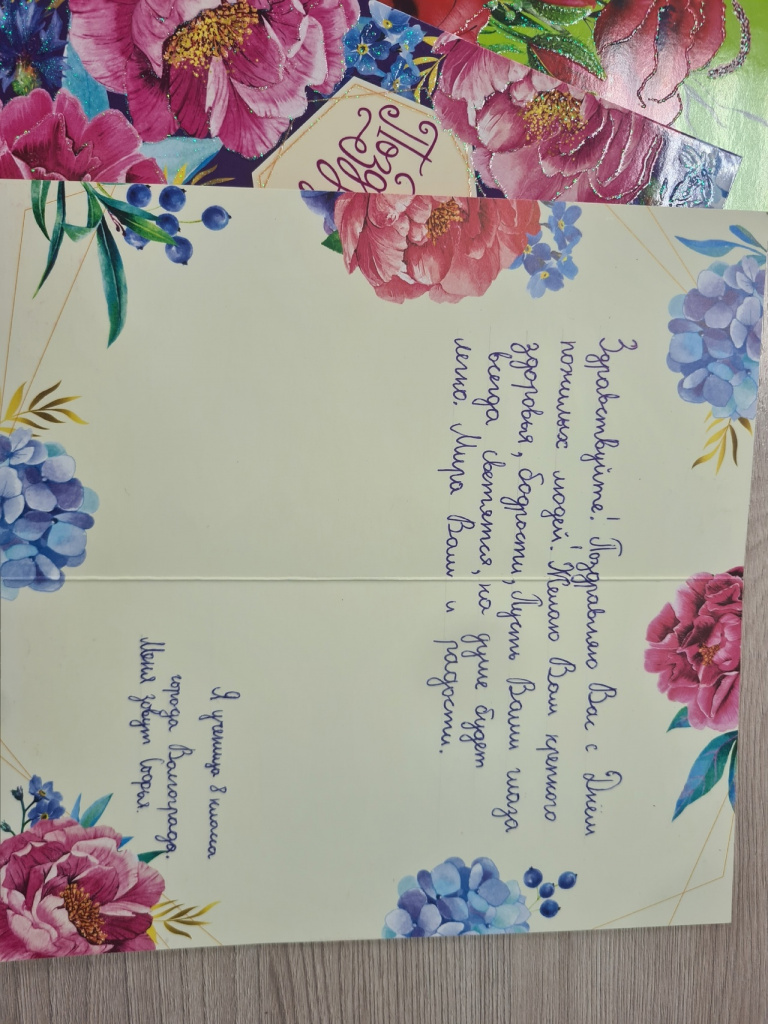 Позд
Здравствуйте! Поздравляю Вас с Днём
пожилых людей! Желаю Вам крепкого
здоровья, бодрости, Пусть Ваши глаза
всегда светятся, на душе будет
легко. Мира Вам и радости.
Я ученица 8 класса
города Волгограда.
Меня зовут Софья.